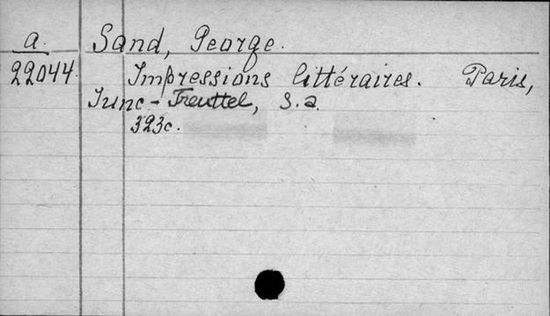 a. Sand, George.
22044. Impressions littéraires. Paris,
Junc-Treuttel, s.a.
323c.